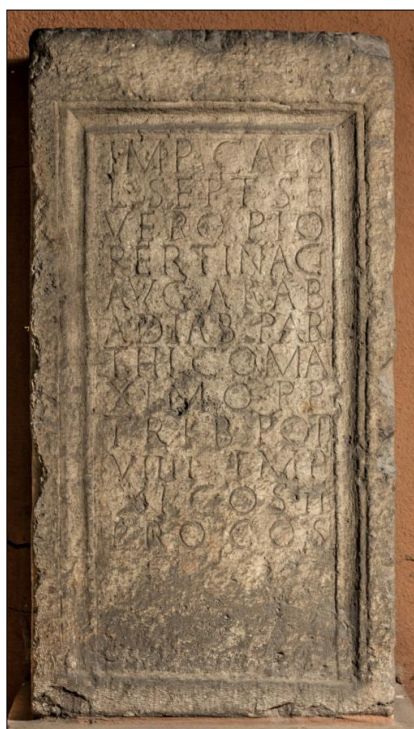 IMP CAES
L SEPT SE
VERO PIO
PERTINAC
AVG ARAB
ADIAB PAR
THICO MA
XIMO P P
TRIB POT
VIIII IMP
XI COS II
PROCOS